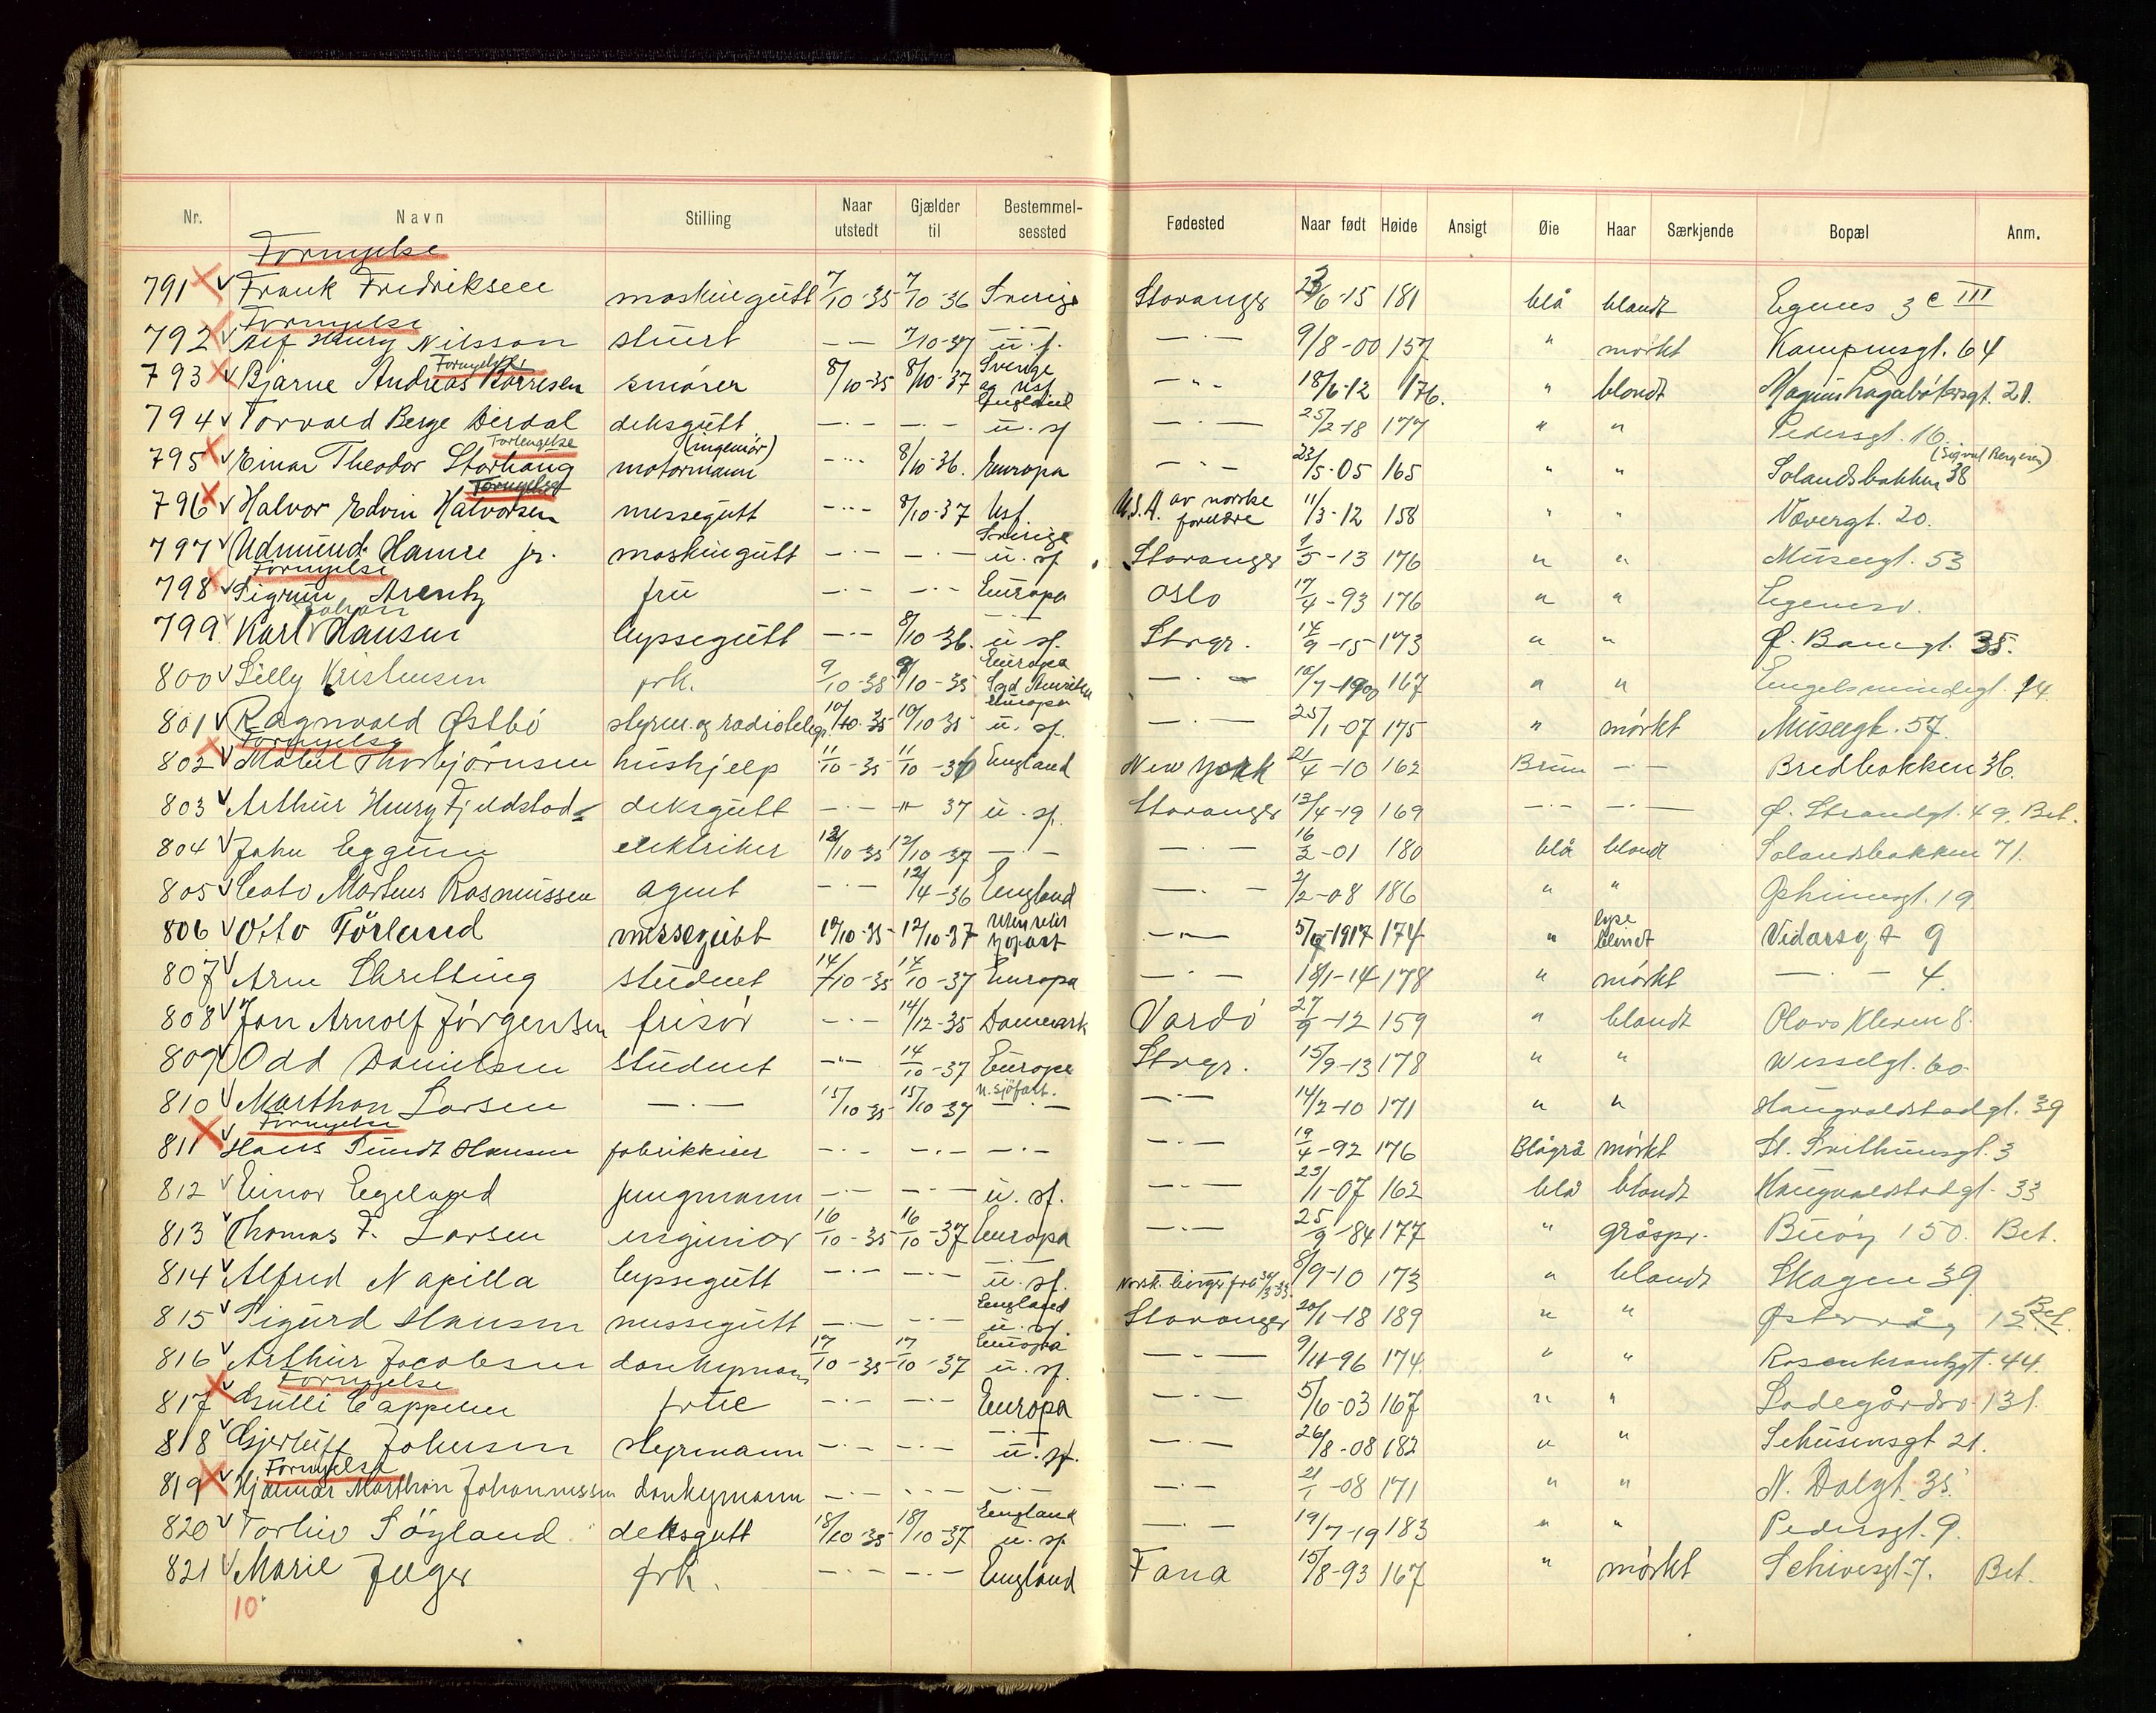 Nr. Navn Stilling Naar utstedt Gjælder til Bestemmelsessted Fødested Naar født Høide Ansigt Øie Haar Særkjende Bopæl Anm.
Fornyelse
791 Frank Fredriksen maskingutt 7/10-35 7/10-36 Sverige Stavanger 23/6-15 181 blå blondt Egenes 3 c III
Fornyelse
792 Alf Henry Nilsson stuert -- 7/10-37 u.s.f. -·- 9/8-00 157 " mørkt Kampensgt. 64
Fornyelse
793 Bjarne Andreas Børresen smører 8/10-35 8/10-37 Sverige og Usf -·- 18/6-12 176. " blondt Magnus Lagabøtersgt. 21.
794 Torvald Berge Dirdal deksgutt -·- -·- England u.sf -·- 25/2-18 177 " " Pedersgt. 16 (Sigval Bergesen)
Forlengelse
795 Einar Theodor Storhaug (ingeniør) motormann -·- 8/10-36. Europa -·- 23/5-05 165 " " Solandsbakken 38
Fornyelse
796 Halvor Edvin Halvorsen messegutt -·- 8/10-37 Usf U.S.A. av norske foreldre 11/3-12 158 " " Nævergt. 20.
797 Udmund Hamre jr. maskingutt -·- -·- Sverige u.sf Stavanger 1/5-13 176 " " Museegt. 53
Fornyelse
798 Sigrun Arentz frü -·- -·- Europa Oslo 17/4-93 176 " " Egenesv.
799 Karl Johan Hansen byssegutt -·- 8/10-36. -·- u.sf. Stvgr. 14/9-15 173 " " Ø. Banegt. 35.
800 Lilly Kristensen frk. 9/10-35 9/10-35 Europa Syd Amerika -·- 10/7-1900 167 " " Engelsmindegt. 74
801 Ragnvald Østbö styrm. og radiotelegr. 10/10-35 10/10-35 Europa u.sf. -·- 25/1-07 175 " mørkt Museegt. 57.
Fornyelse
802 Mabel Thorbjørnsen hushjelp 11/10-35 11/10-36 England New York 21/4-10 162 Brun -·- Bredbakken 36.
803 Arthur Henry Fjeldstad deksgutt -·- -"- 37 u.sf. Stavanger 13/4-19 169 -·- -·- Ø. Strandgt. 49. Bet.
804 John Eggum elektriker 12/10-35 12/10-37 -·- -·- 16/2-01 180 blå blondt Solandsbakken 71.
805 Cato Martens Rasmussen agent -·- 12/4-36 England -·- 2/2-08 186 " " 19
806 Otto Förland messegutt 12/10-35 12/10-37 Utenriks sjøfart -·- 5/9-1917 174 " lyse blondt Vidarsgt 9
807 Arne Skretting student 14/10-35 14/10-37 Europa -·- 18/1-14 178 " mørkt -·- 4.
808 Jon Arnolf Jörgensen frisör -·- 14/12-35 Danmark Vardö 27/9-12 159 " blondt Olavs Kleven 8.
809 Odd Danielsen student -·- 14/10-37 Europa Stvgr. 15/9-13 178 " " Wesselgt. 60
810 Marthon Larsen -·- 15/10-35 15/10-37 u.sjöfart. -·- -·- 14/2-10 171 " " Haugvaldstadgt. 39
Fornyelse
811 Hans Tundt Hansen fabrikkeier -·- -·- -·- -·- 19/4-92 176 Blågrå mørkt St. Svithunsgt. 3
812 Einar Egeland jungmann -·- -·- u.sf. -·- 23/1-07 162 blå blondt Haugvaldstadgt. 33
813 Thomas F. Larsen ingeniør 16/10-35 16/10-37 Europa -·- 25/9-84 177 " gråspr. Buöy 150. Bet.
814 Alfred Napilla byssegutt -·- -·- -·- u.sf. Norsk borger fra 30/3-33. 8/9-10 173 " blondt Skagen 39
815 Sigurd Hansen messegutt -·- -·- England u.sf Stavanger 20/1-18 189 " " Østervåg 12. Bet.
816 Arthur Jacobsen donkeymann 17/10-35 17/10-37 Europa u.sf. -·- 9/11-96 174. " " Rosenkrantzgt. 44.
Fornyelse
817 Gulli Cappelen frue -·- -·- Europa -·- 5/6-03 167 " " Ladegårdsv 131.
818 Gjerluff Johnsen styrmann -·- -·- -·- u.sf. -·- 26/8-08 182 " " Schusensgt 21.
Fornyelse
819 Hjalmar Marthon Johannessen donkeymann -·- -·- -·- -·- 21/1-08 171 " " N. Dalgt. 35.
820 Torleiv Söyland deksgutt 18/10-35 18/10-37 England u.sf -·- 19/7-19 183 " " Pedersgt. 9.
821 Marie Jæger frk. -·- -·- England Fana 15/8-93 167 " mørkt Schivesgt. 7. Bet.
10